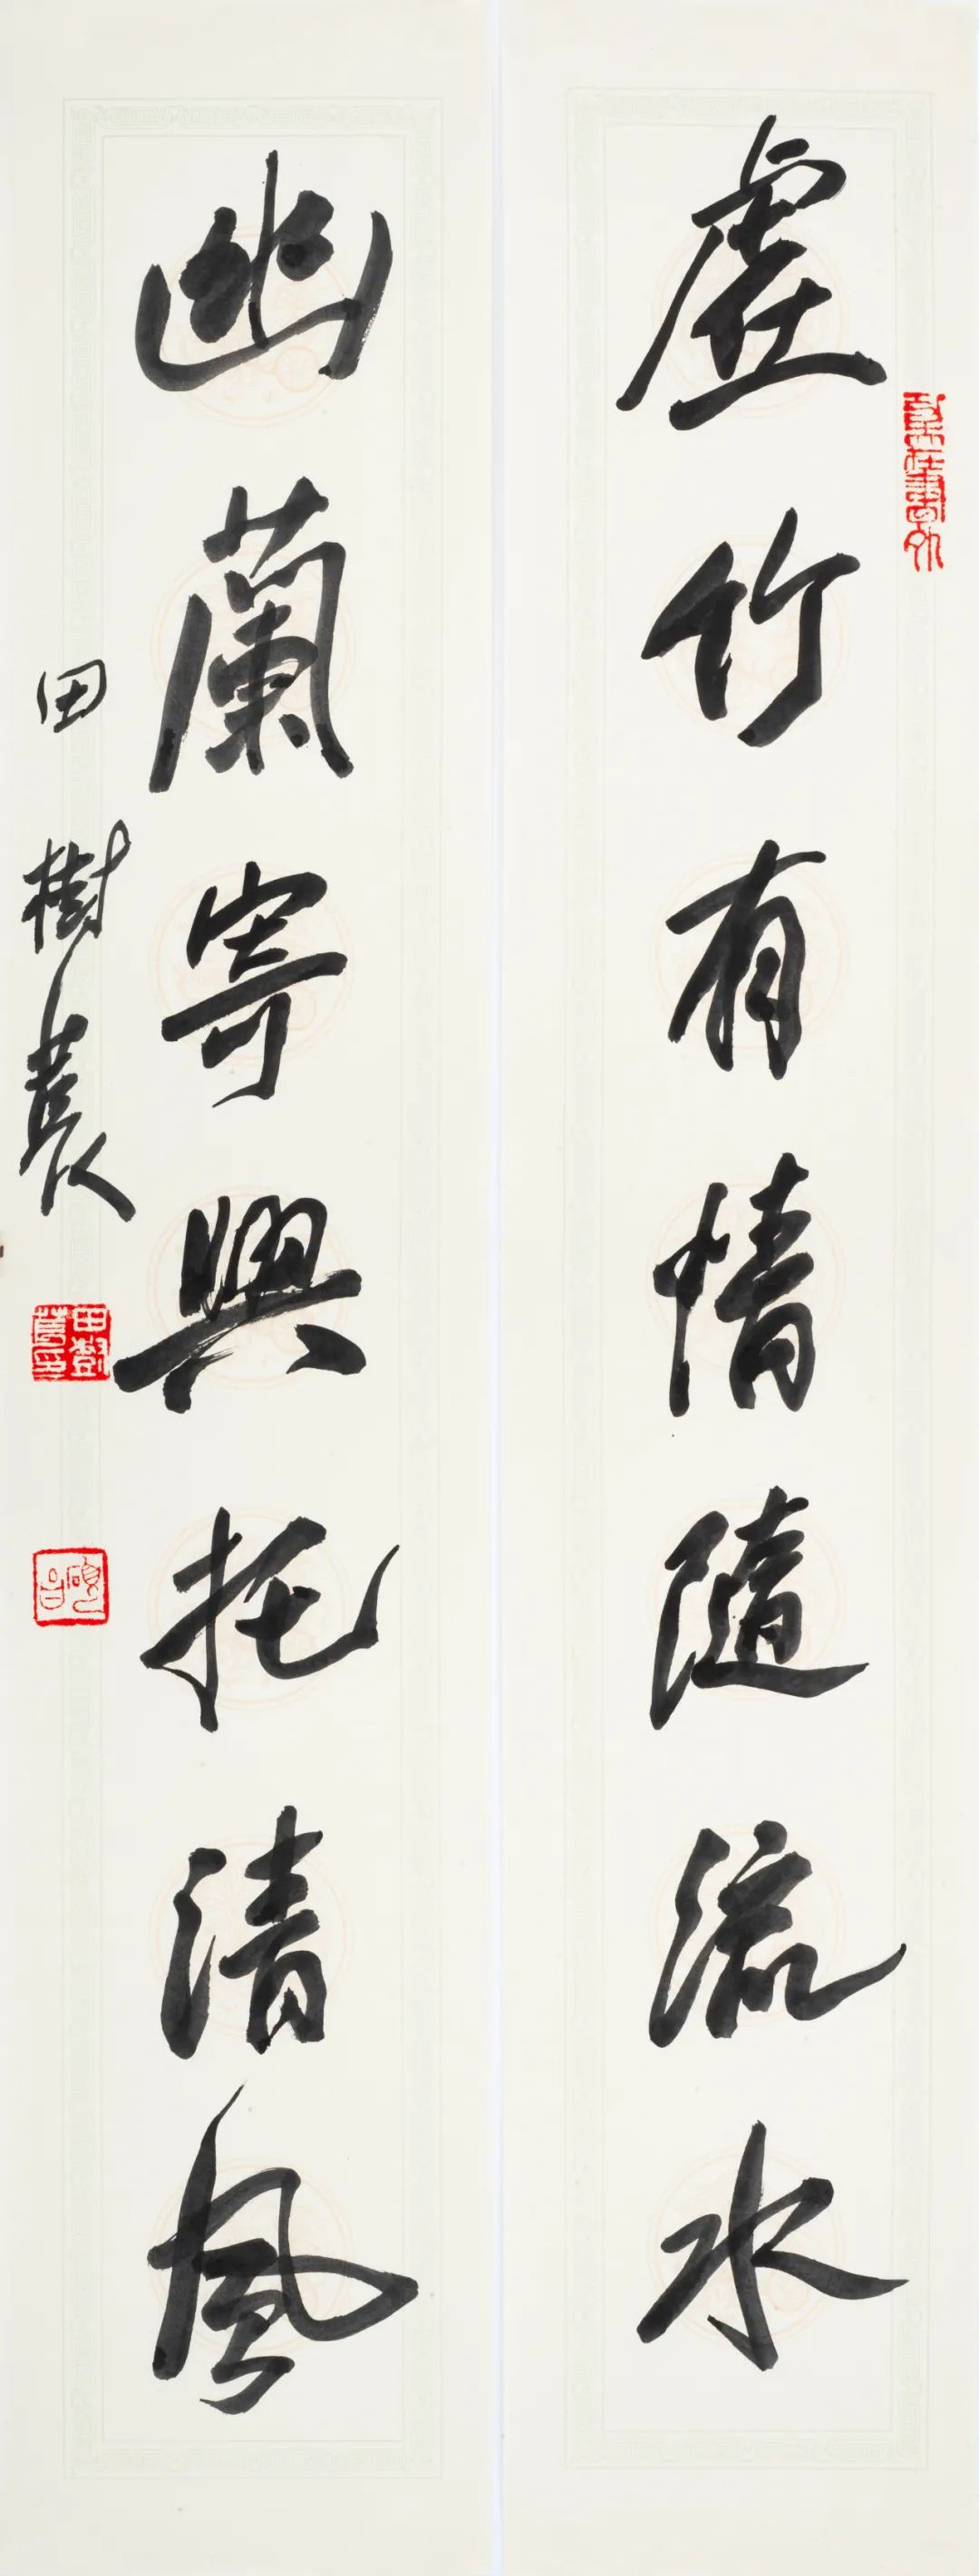 虛竹有情隨流水
幽蘭寄興托清風
田樹萇
田樹萇印